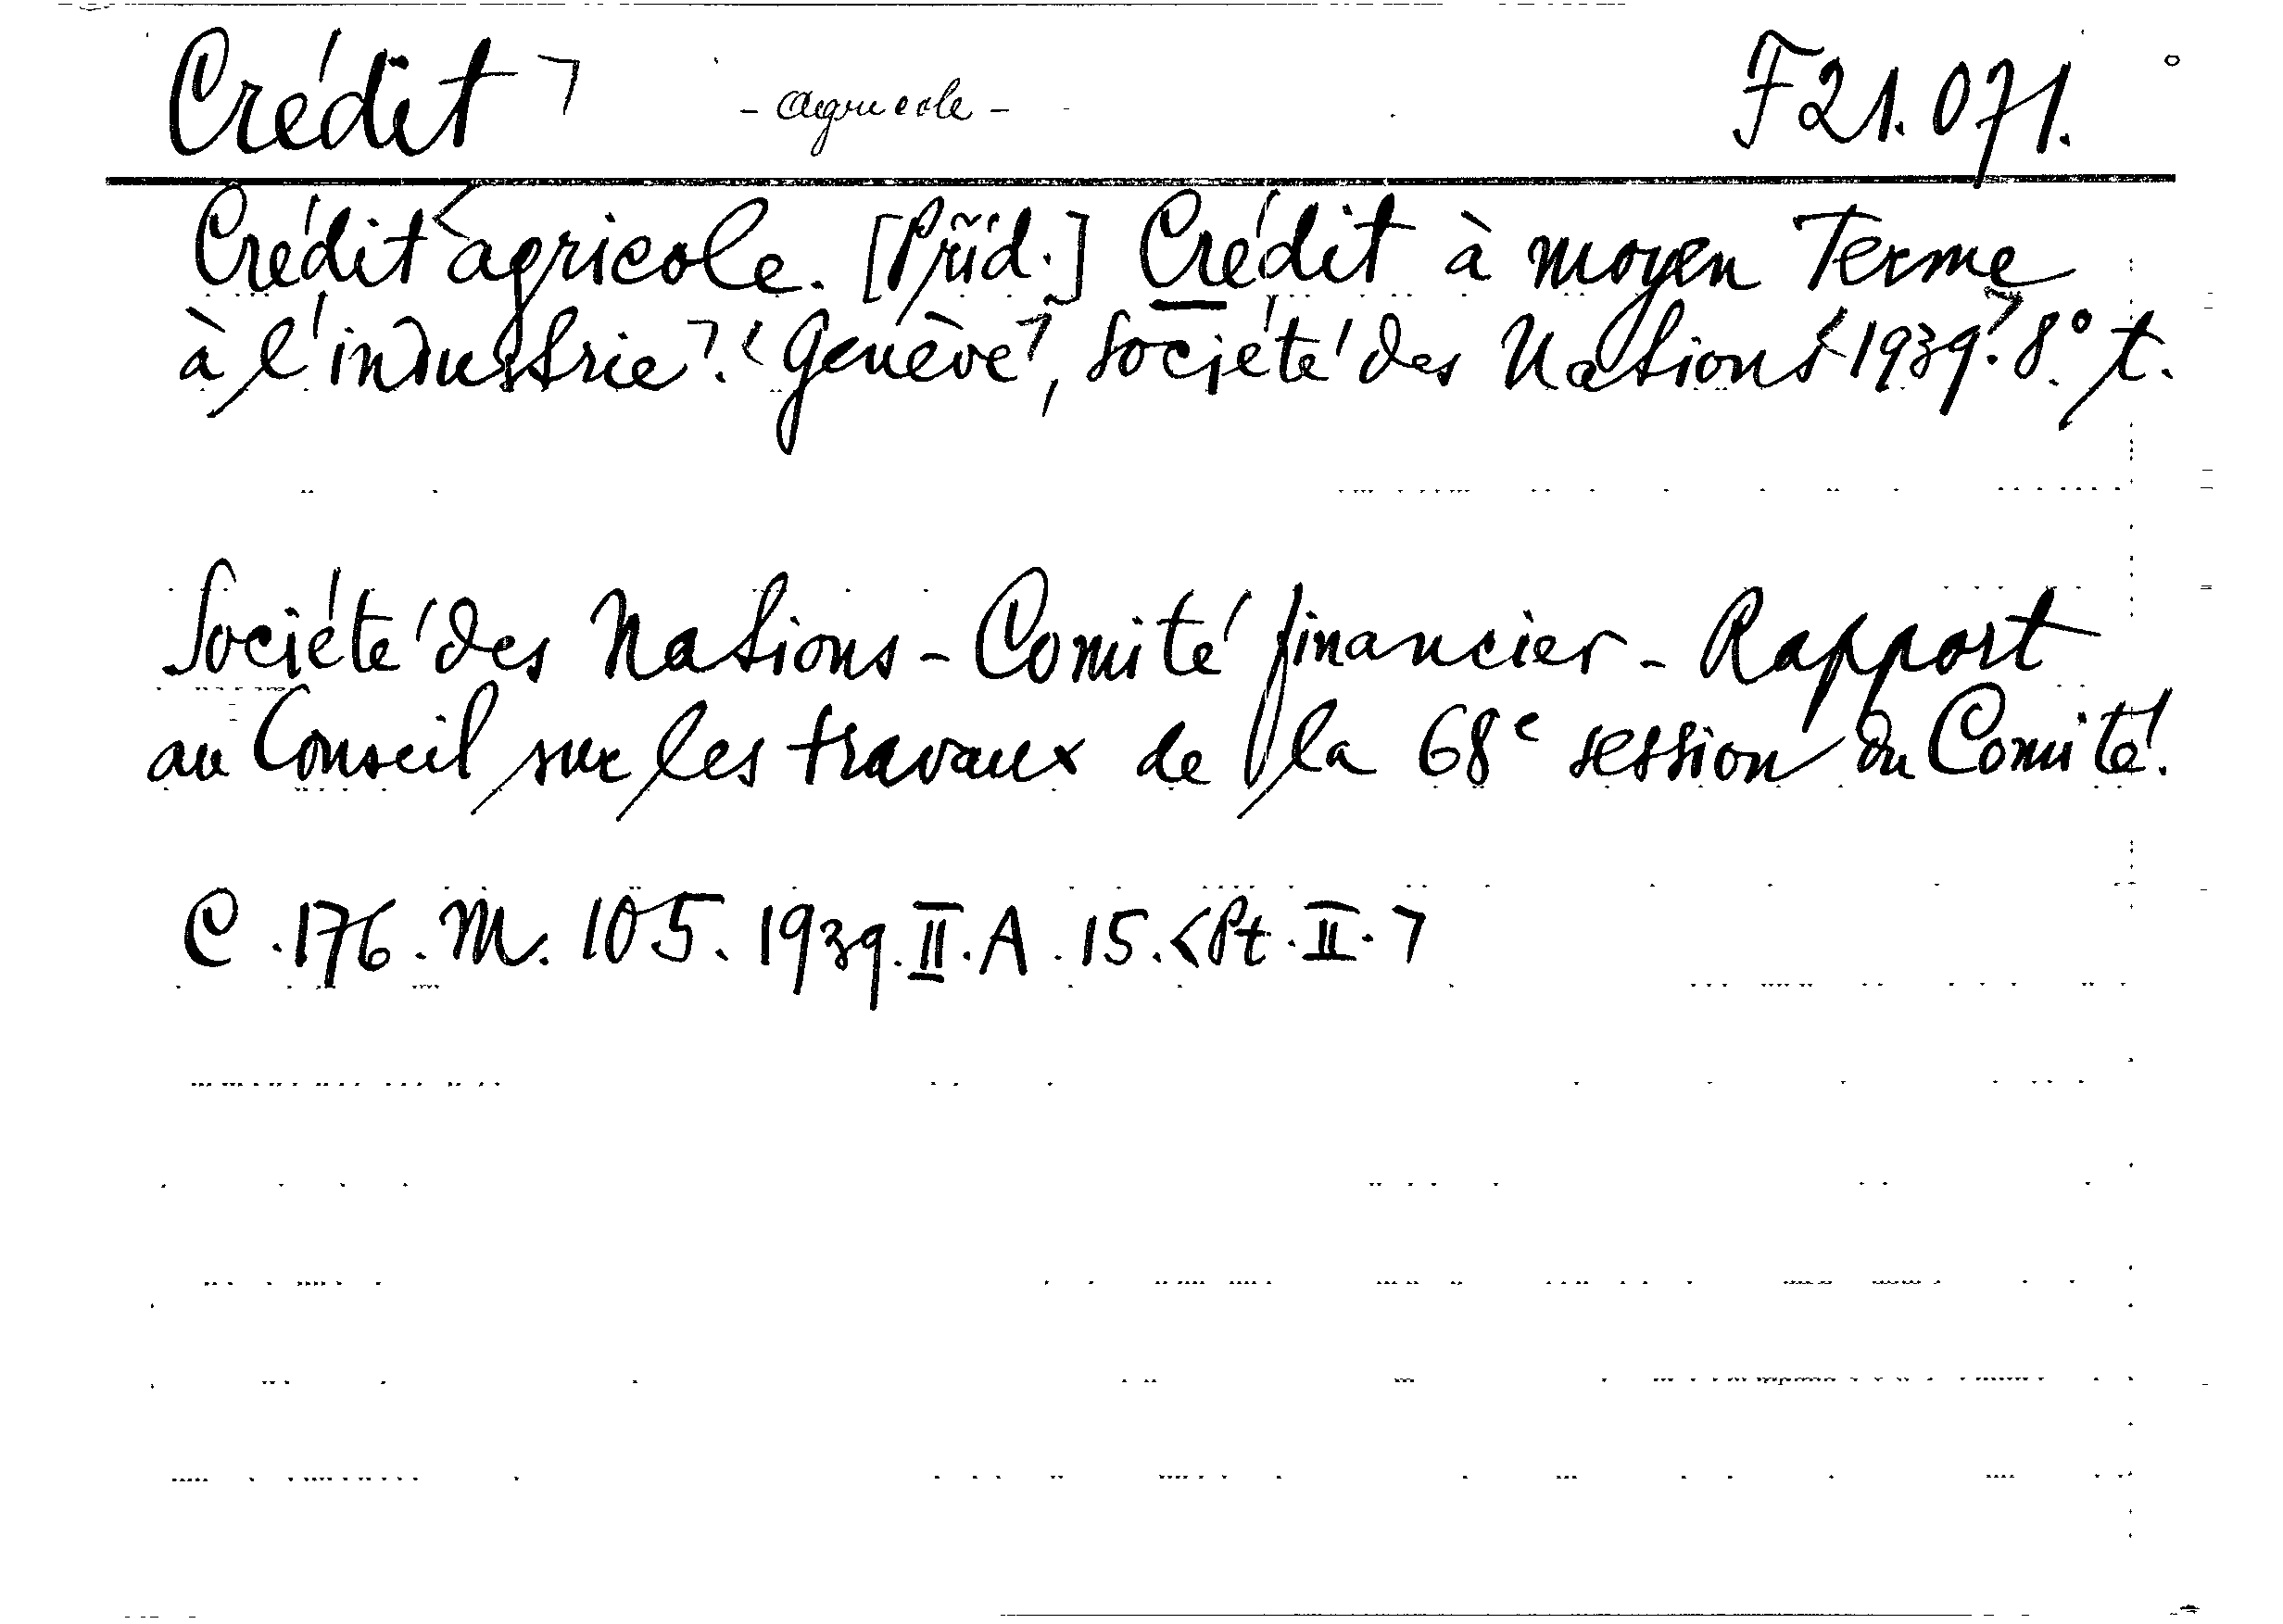 Crédit⁊ - agricole - F 21.071.
Crédit <agricole. [Příd.] Crédit à moyen Terme
à l'industrie⁊. <Genève⁊, Société des Nations <1939⁊. 8°. t.
Société des Nations - Comité financier - Rapport
au Conseil sur les travaux de la 68e session du Comité.
C.176.M.105.1939.II.A.15.<Pt.II.⁊